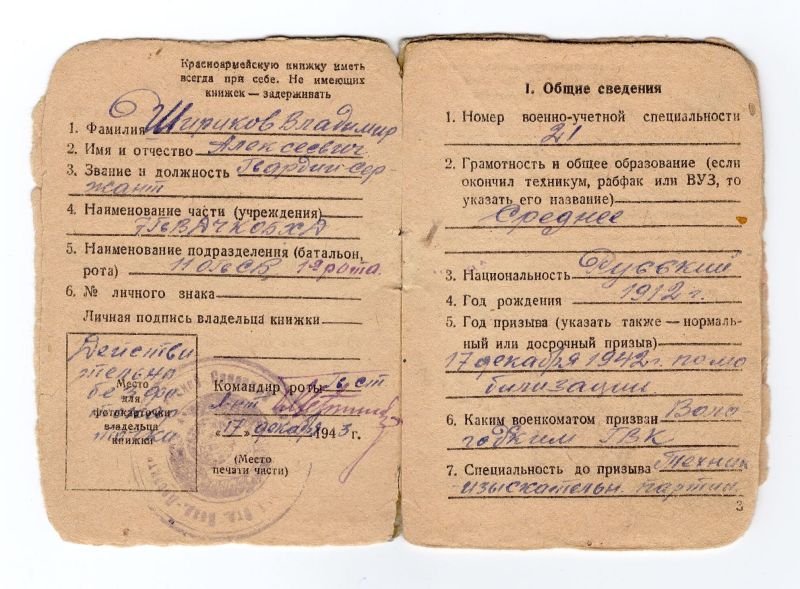 Красноармейскую книжку иметь
всегда при себе. Не имеющих
книжек — задерживать
1. Фамилия Шириков Владимир
2. Имя и отчество Алексеевич
3. Звание и должность Гвардии сер
жант
4. Наименование части (учреждения)
5. Наименование подразделения (батальон,
рота) рота
6. № личного знака
Личная подпись владельца книжки
Действи
тельно
без фо
Место
для
фотокарточки
владельца
книжки
Командир роты
„17" декабря 1943 г.
(Место
печати части)
I. Общие сведения
1. Номер военно-учетной специальности
21
2. Грамотность и общее образование (если
окончил техникум, рабфак или ВУЗ, то
указать его название)
Среднее
3. Национальность Русский
4. Год рождения 1912 г.
5. Год призыва (указать также — нормаль-
ный или досрочный призыв)
17 декабря 1942 г. по мо
билизации
6. Каким военкоматом призван Воло
годским ГВК
7. Специальность до призыва Техник
изыскательн. партии
3